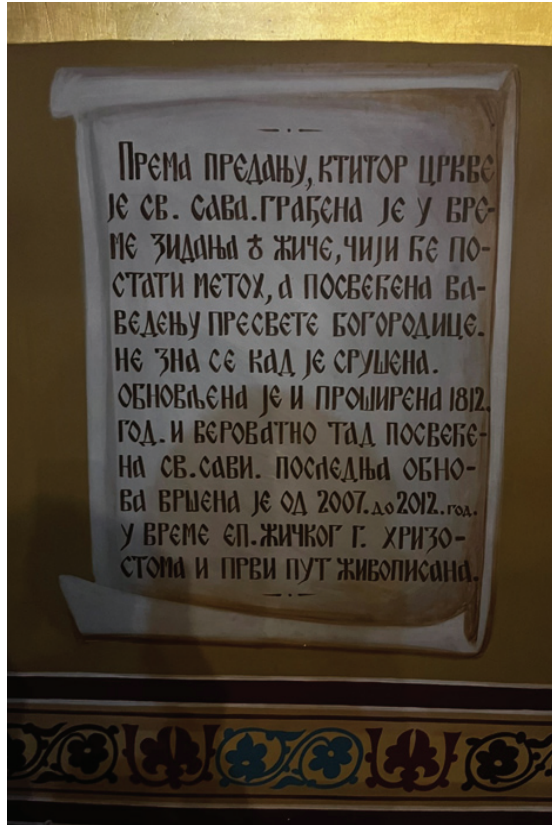 Према предању, ктитор цркве
је св. Сава. Грађена је у вре-
ме зидања ман. Жиче, чији ће по-
стати метох, а посвећена Ва-
ведењу Пресвете Богородице.
Не зна се кад је срушена.
Обновљена је и проширена 1812.
год. и вероватно тад посвеће-
на св. Сави. Последња обно-
ва вршена је од 2007. до 2012. год.
у време еп. жичког г. Хризо-
стома и први пут живописана.